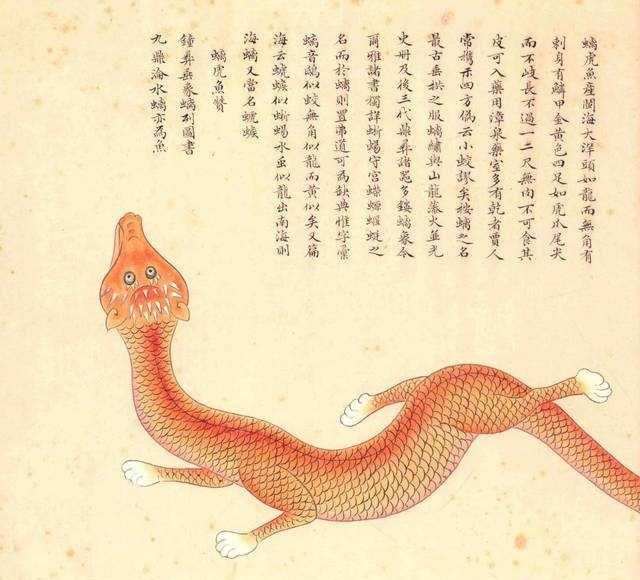 螭虎魚產閩海大洋頭如龍而無角有
刺身有鱗甲金黃色四足如虎爪尾尖
而不岐長不過一二尺無肉不可食其
皮可入藥用漳泉藥室多有乾者賈人
常攜示四方偽云小蛟謬矣按螭之名
最古垂拱之服螭繡與山龍藻火並光
史冊及後三代鼎彝諸器多鏤螭象今
爾雅諸書獨詳蜥蜴守宮蠑螈蝘蜓之
名而於螭則置弗道可為缺典惟字彙
螭音鴟似蛟無角似龍而黃似矣又篇
海云似蜥蜴水虫似龍出南海則
海螭又當名
螭虎魚贊
鐘彝垂象螭列圖書
九鼎淪水螭亦為魚